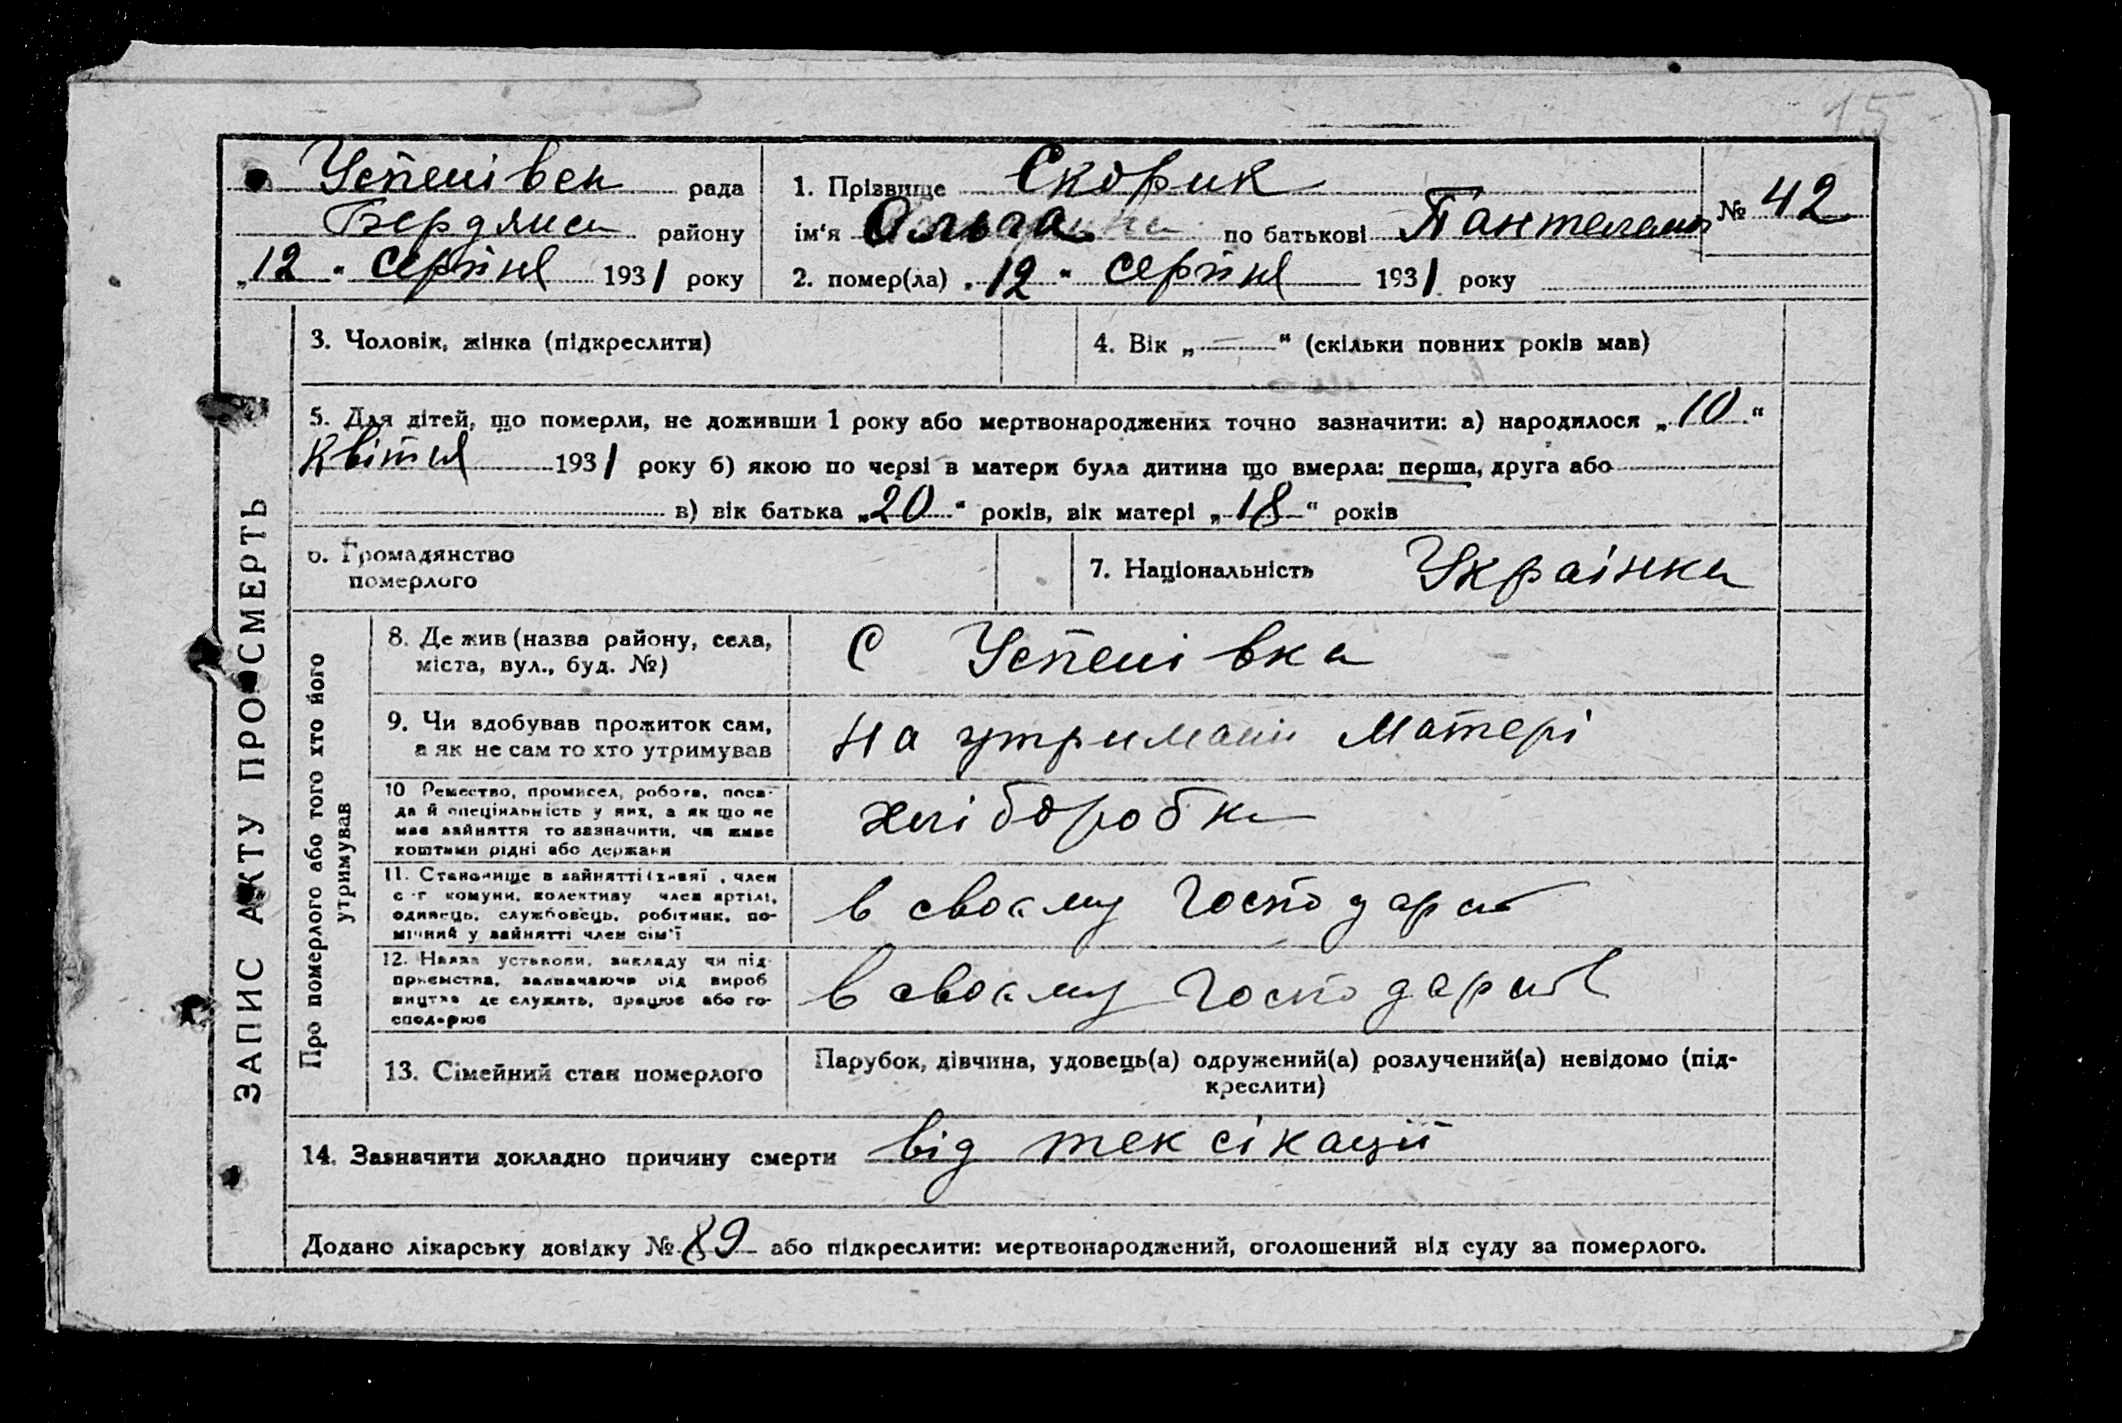 15
Успенівск рада
Бердянск району
„12“ серпня 1931 року
1. Прізвище Скорик
ім'я Ольга по батькові Пантелеім
№ 42
2. помер(ла) „12“ серпня 1931 року
3. Чоловік, жінка (підкреслити)
4. Вік „—“ (скільки повних років мав)
5. Для дітей, що померли, не доживши 1 року або мертвонароджених точно зазначити: а) народилося „10“
квітня 1931 року б) якою по черзі в матери була дитина що вмерла: перша, друга або
в) вік батька „20“ років, вік матері „18“ років
6. Громадянство
померлого
7. Національність Українка
ЗАПИС АКТУ ПРО СМЕРТЬ
Про померлого або того хто його
утримував
8. Де жив (назва району, села,
міста, вул., буд. №)
С Успенівка
9. Чи здобував прожиток сам,
а як не сам то хто утримував
на утримані матері
10 Ремество, промисел, робота, поса-
да й спеціяльність у них, а як що не
мав зайняття то зазначити, чи живе
коштами рідні або держави
хліборобка
11. Становище в зайнятті (хазяї, член
с-г комуни, колективу член артілі,
одинець, службовець, робітник, по-
мічний у зайнятті член сім'ї
в своєму господарст
12. Назва установи, закладу чи під-
приємства, зазначаючи рід вироб
ництва де служить, працює або го-
сподарює
в своєму господарст
13. Сімейний стан померлого
Парубок, дівчина, удовець(а) одружений(а) розлучений(а) невідомо (під-
креслити)
14. Зазначити докладно причину смерти від тексікації
Додано лікарську довідку № 89 або підкреслити: мертвонароджений, оголошений від суду за померлого.